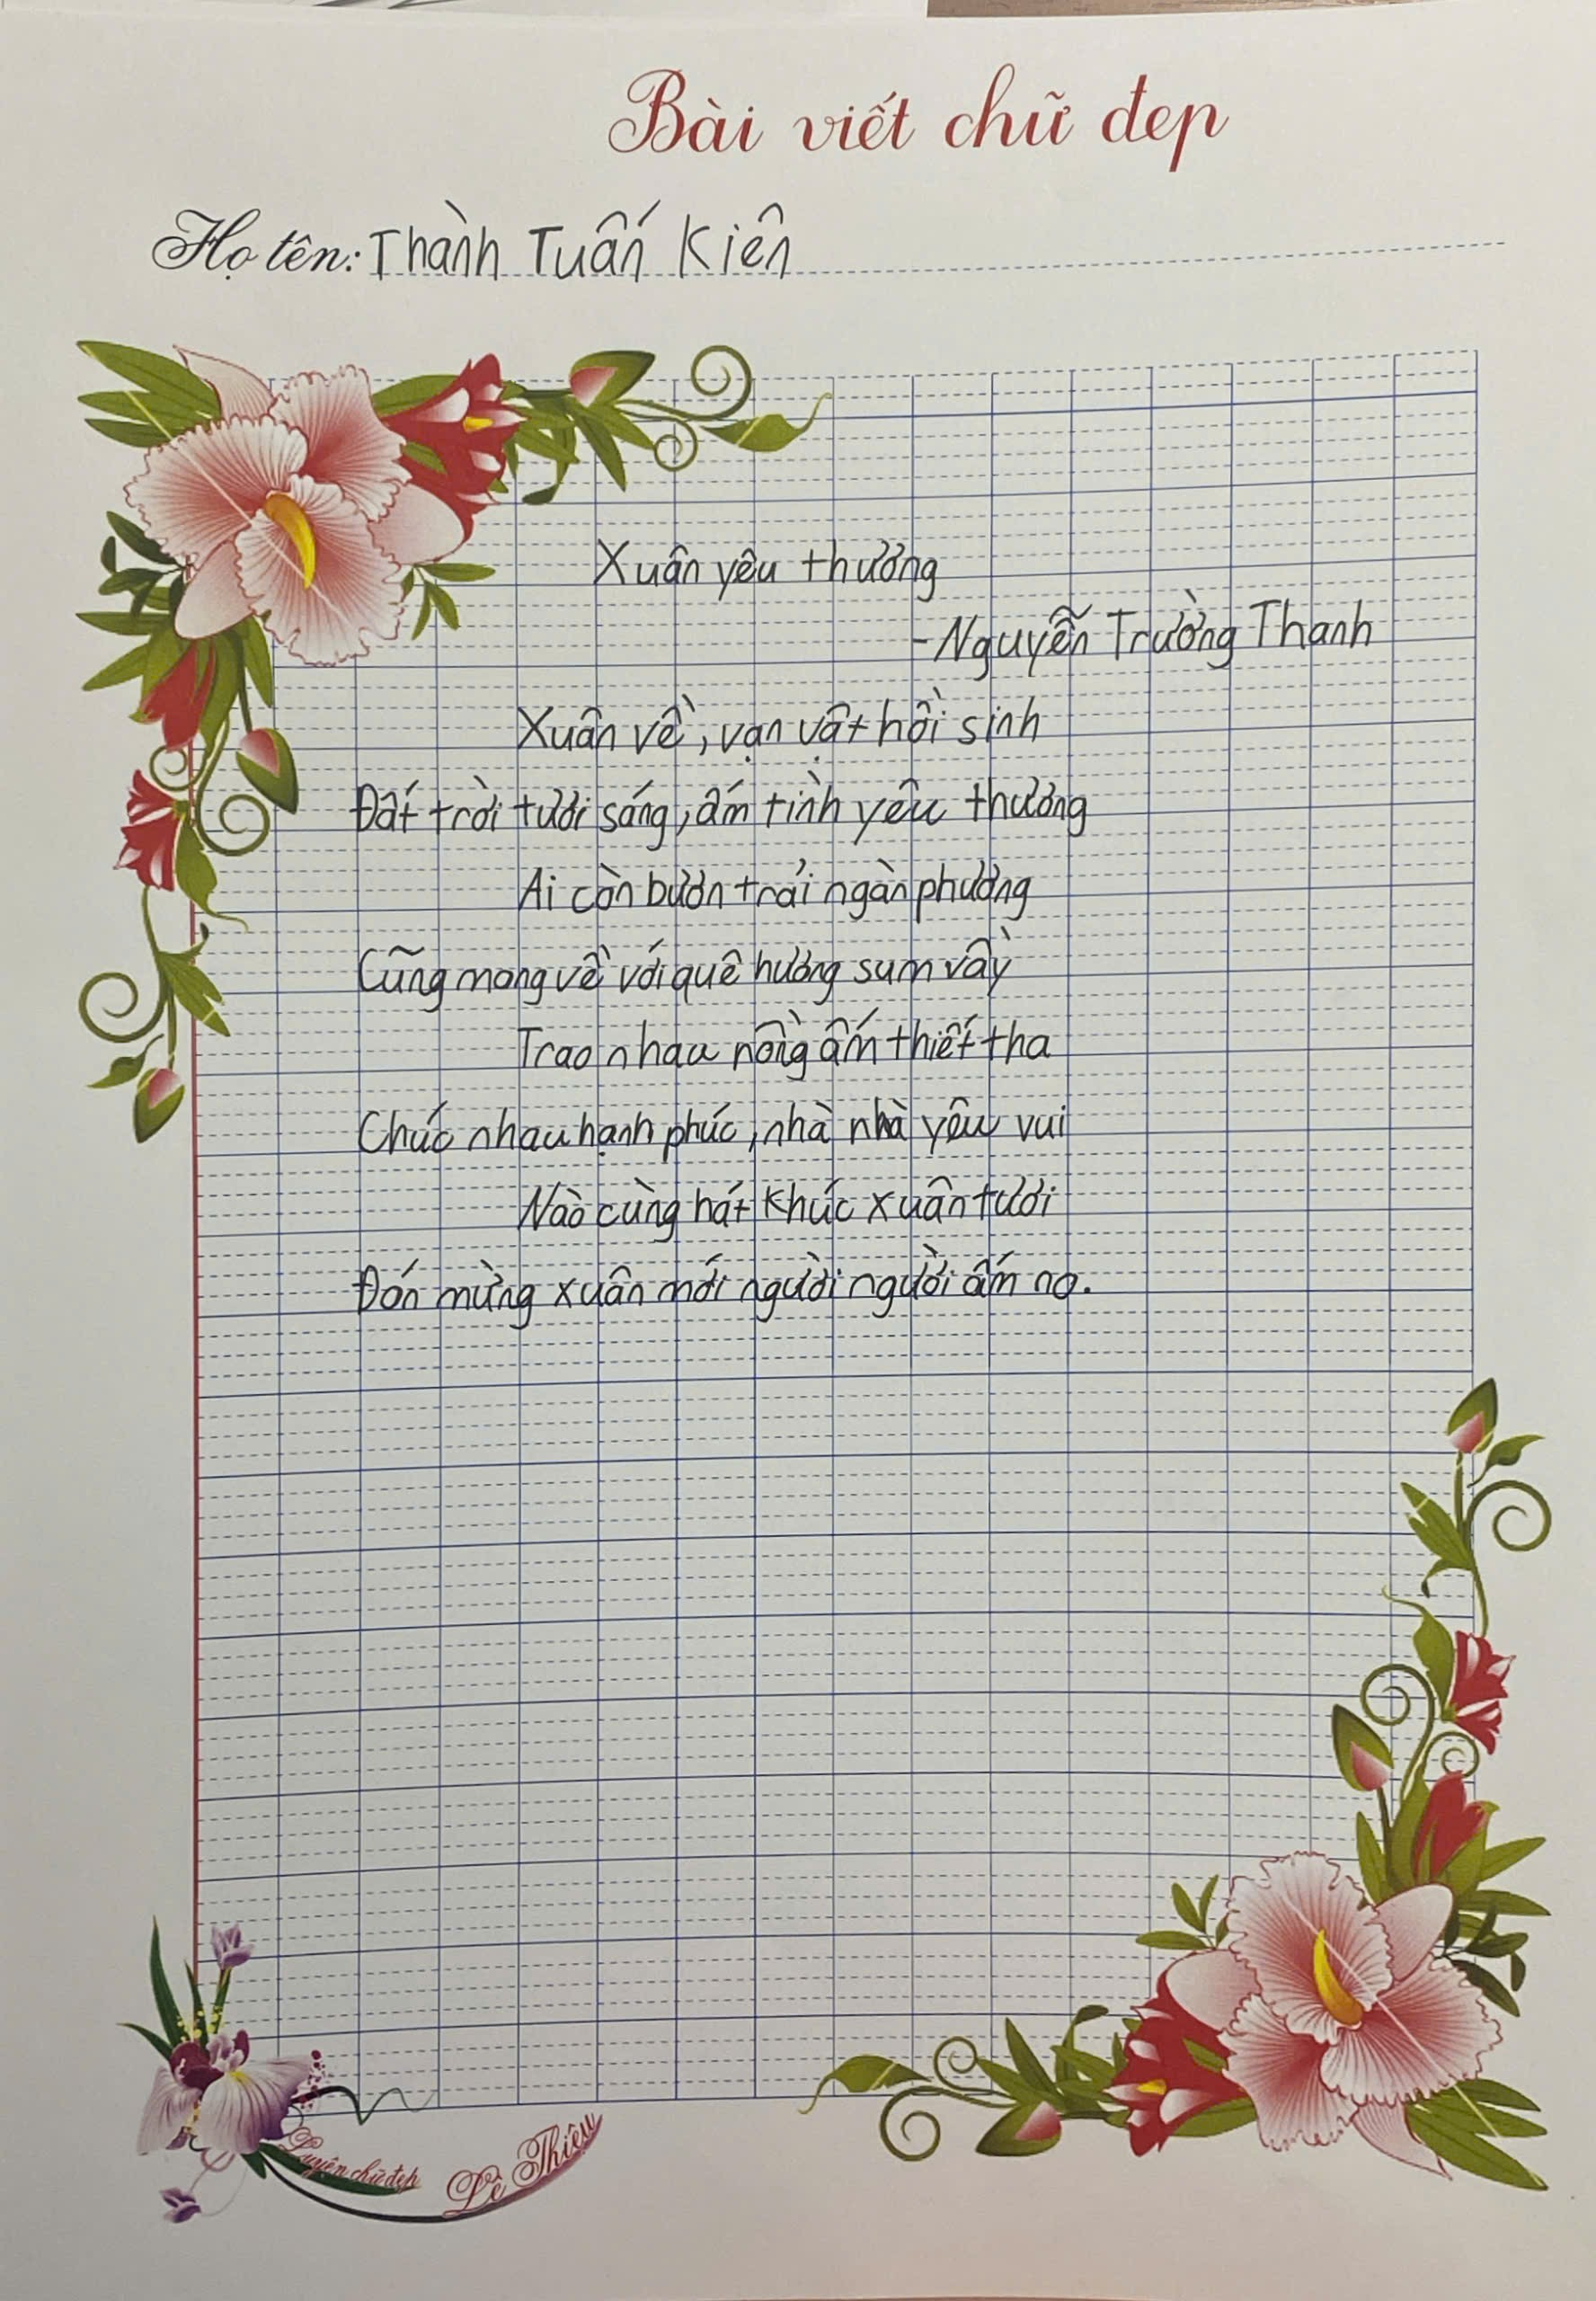 Bài viết chữ đẹp
Họ tên: Thành Tuấn Kiên
Xuân yêu thương
- Nguyễn Trường Thanh
Xuân về, vạn vật hồi sinh
Đất trời tươi sáng, ấm tình yêu thương
Ai còn bươn trải ngàn phương
Cũng mong về với quê hương sum vầy
Trao nhau nồng ấm thiết tha
Chúc nhau hạnh phúc, nhà nhà yêu vui
Nào cùng hát khúc xuân tươi
Đón mừng xuân mới người người ấm no.
Luyện chữ đẹp
Lê Thiệu